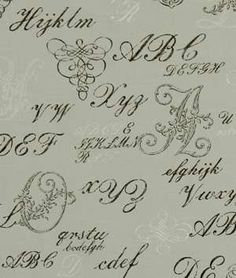 Hijklm
ABC
DEFGH
Xyz
A
&
IJKLMN
R
U
DEF
efghijk
xyz
Vwxy
O
L
qrstu
bcdefgh
ABC
ABC
cdef